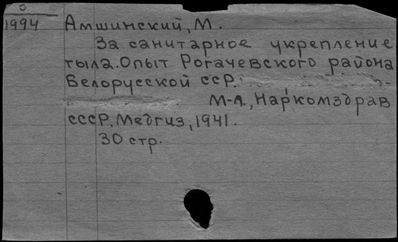 0
1994 Амшинский, М.
За санитарное укрепление
тыла. Опыт Рогачевского района
Белорусской ССР.
М-Л., Наркомздрав
СССР. Медгиз, 1941.
30 стр.